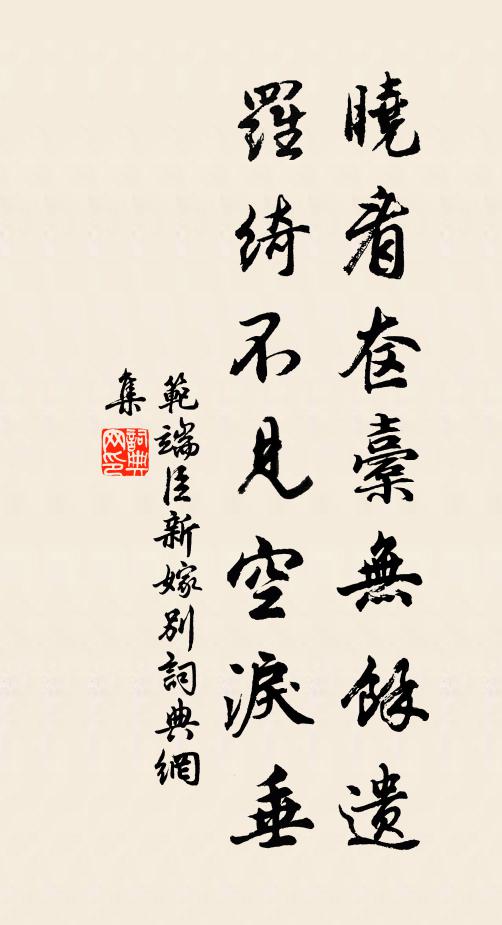 曉看奁橐無餘遺
羅綺不見空淚垂
範端臣新嫁別詞典網
集
詞典網印